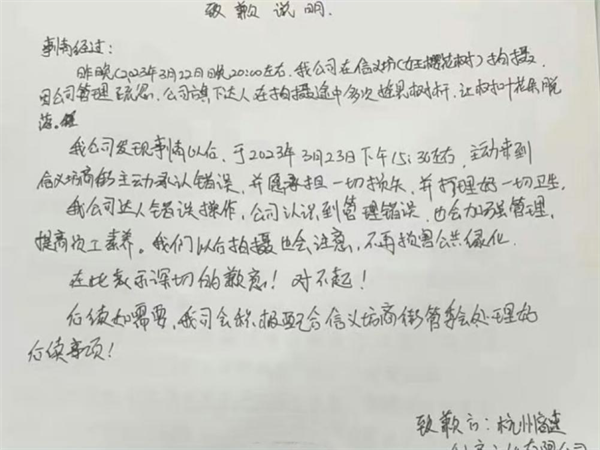 致歉说明.
事情经过:
昨晚(2023年3月22日晚20:00左右,我公司在信义坊(女王樱花树)拍摄,
因公司管理疏忽,公司旗下达人在拍摄途中多次摇晃树杆,让树叶花朵脱
落。
我公司发现事情以后,于2023年3月23日下午15:30左右,主动来到
信义坊商街主动承认错误,并愿承担一切损失,并打理好一切卫生。
我公司达人错误操作,公司认识到管理错误,也会加强管理,
提高员工素养。我们以后拍摄也会注意,不再损害公共绿化.
在此表示深切的歉意!对不起!
后续如需要,我司会积极配合信义坊商街管委会处理好
后续事项!
致歉方:杭州
有限公司